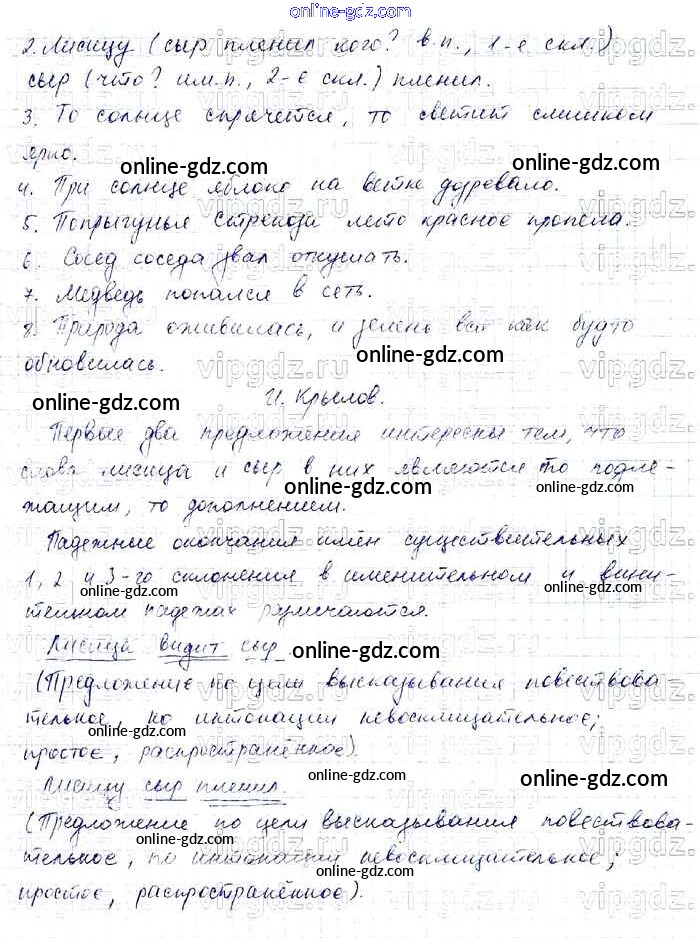 online-gdz.com
2. Лисицу (сыр пленил кого? в.п., 1-е скл.)
сыр (что? им.п., 2-е скл.) пленил.
3. То солнце спрячется, то светит слишком
ярко.
online-gdz.com
4. При солнце яблоко на ветке дозревало.
5. Попрыгунья Стрекоза лето красное пропела.
6. Сосед соседа звал откушать.
7. Медведь попался в сеть.
8. Природа оживилась, и зелень вся как будто
обновилась.
online-gdz.com
И. Крылов.
online-gdz.com
Первые два предложения интересны тем, что
слова лисица и сыр в них являются то подле-
жащим, то дополнением.
online-gdz.com
online-gdz.com
Падежные окончания имён существительных
1, 2 и 3-го склонения в именительном и вини-
тельном падежах различаются.
online-gdz.com
online-gdz.com
Лисица видит сыр
online-gdz.com
(Предложение по цели высказывания повествова-
тельное, по интонации невосклицательное;
online-gdz.com
online-gdz.com
простое, распространённое).
Лисицу сыр пленил.
online-gdz.com
online-gdz.com
(Предложение по цели высказывания повествова-
тельное, по интонации невосклицательное;
простое, распространённое).
online-gdz.com
online-gdz.com